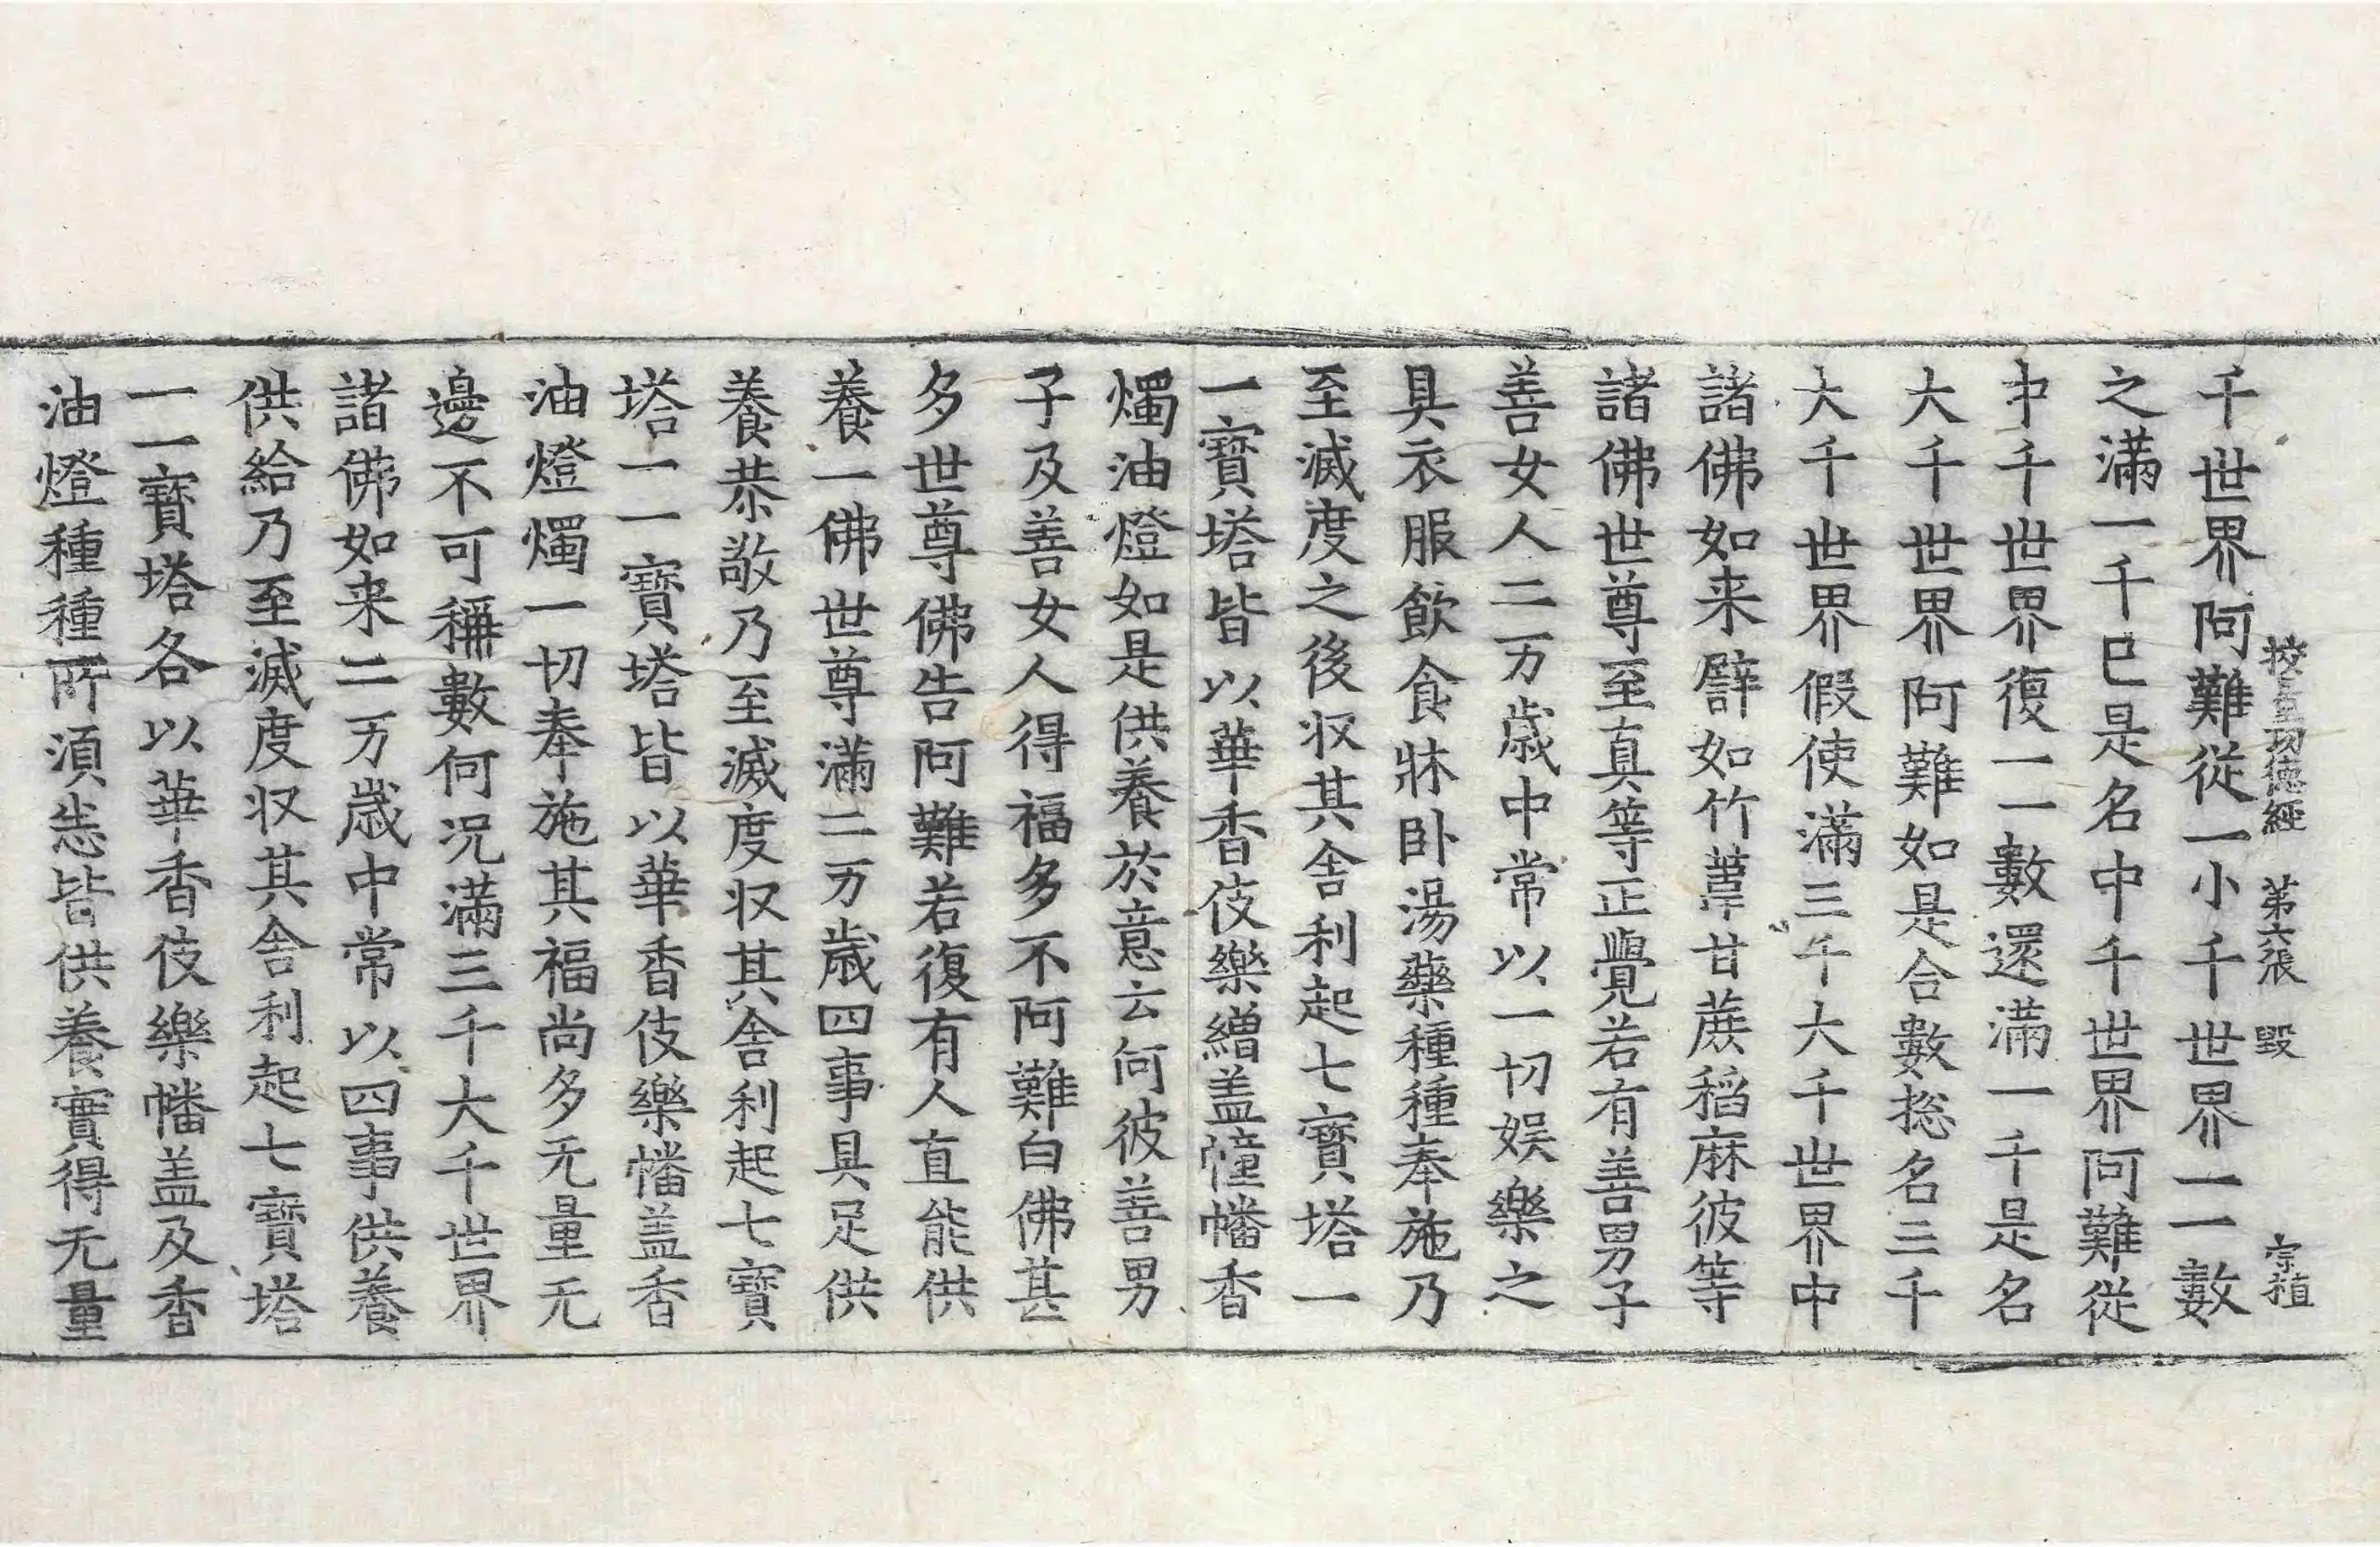 挍量功德經 第六張 毀 宗植
千世界阿難從一小千世界一一數
之滿一千已是名中千世界阿難從
中千世界復一一數還滿一千是名
大千世界阿難如是合數揔名三千
大千世界假使滿三千大千世界中
諸佛如来譬如竹葦甘蔗稻麻彼等
諸佛世尊至真等正覺若有善男子
善女人二万歲中常以一切娛樂之
具衣服飲食牀卧湯藥種種奉施乃
至滅度之後収其舍利起七寶塔一
一寶塔皆以華香伎樂繒盖幢幡香
燭油燈如是供養於意云何彼善男
子及善女人得福多不阿難白佛甚
多世尊佛告阿難若復有人直能供
養一佛世尊滿二万歲四事具足供
養恭敬乃至滅度収其舍利起七寶
塔一一寶塔皆以華香伎樂幡盖香
油燈燭一切奉施其福尚多无量无
邊不可稱數何況滿三千大千世界
諸佛如来二万歲中常以四事供養
供給乃至滅度収其舍利起七寶塔
一一寶塔各以華香伎樂幡盖及香
油燈種種所須悉皆供養實得无量